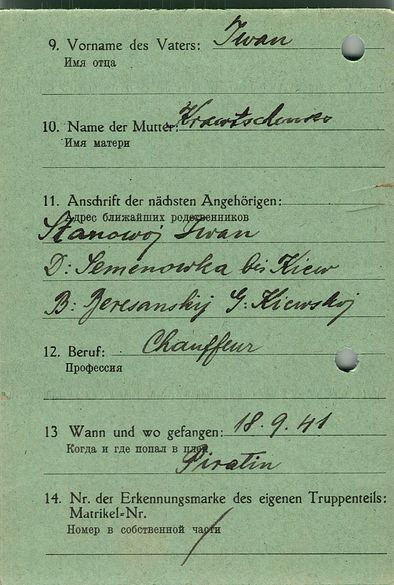 9. Vorname des Vaters: Iwan
Имя отца
10. Name der Mutter: Krawtschenko
Имя матери
11. Anschrift der nächsten Angehörigen:
Адрес ближайших родственников
Stanowoj Iwan
D: Semenowka bis Kiew
B: Beresanskij G: Kiewskoj
12. Beruf: Chauffeur
Профессия
13 Wann und wo gefangen: 18.9.41
Когда и где попал в плен
Piratin
14. Nr. der Erkennungsmarke des eigenen Truppenteils:
Matrikel-Nr.
Номер в собственной части
/